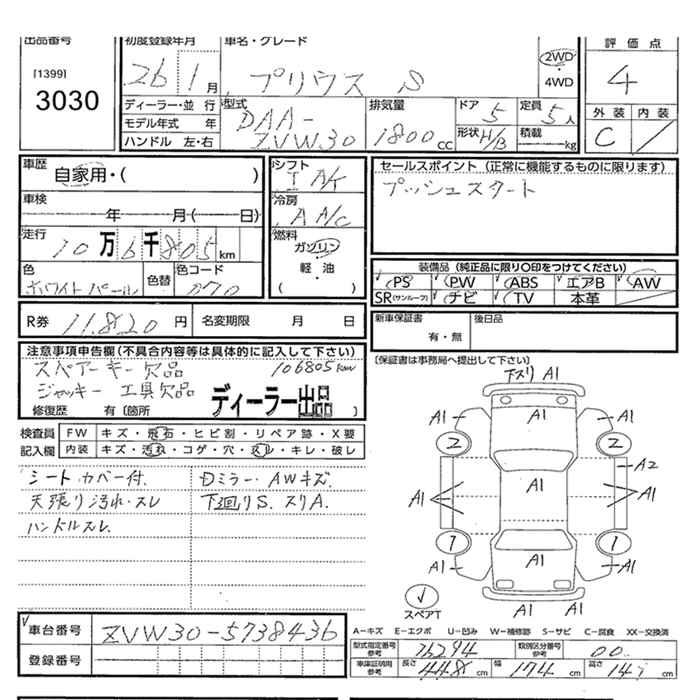 出品番号
[1399]
3030
初度登録年月
26 1 月
車名・グレード
プリウス S
2WD
・4WD
評価点
4
外装 内装
C
ディーラー・並行
モデル年式 年
ハンドル 左・右
型式
DAA-
ZVW30
排気量
1800 CC
ドア 5
形状 H/B
定員 5人
積載 kg
車歴
自家用・( )
車検
年 月(日)
走行
10万6千805km
色
ホワイトパール
色替
色コード
070
シフト
I AK
冷房
A A/C
燃料
ガソリン
軽・油
( )
セールスポイント (正常に機能するものに限ります)
プッシュスタート
装備品 (純正品に限り○印をつけてください)
PS PW ABS エアB AW
SR(サンルーフ) チビ TV 本革
R券 11,820 円 名変期限 月 日
新車保証書
有・無
後日品
(保証書は事務局へ提出して下さい)
注意事項申告欄(不具合内容等は具体的に記入して下さい)
スペアーキー欠品 106805km
ジャッキー 工具欠品
修復歴 有(箇所 )
ディーラー出品
検査員 FW キズ・飛石・ヒビ割・リペア跡・X要
記入欄 内装 キズ・汚れ・コゲ・穴・スレ・キレ・破レ
シートカバー付.
天張り汚れ・スレ
ハンドルスレ.
Dミラー・AWキズ
下廻りS. スリA.
下スリ A1
A1 A1 A1
2 2
A2
A1 A1 A1
A1
7 7
A1 A1 A1
A1 A1
スペアT
A-キズ E-エクボ U-凹み W-補修跡 S-サビ C-腐食 XX-交換済
車台番号 ZVW30-5738436
登録番号
型式指定番号 参考 16294
類別区分番号 参考 00
車庫証明用 参考
長さ 448 cm 幅 174 cm 高さ cm